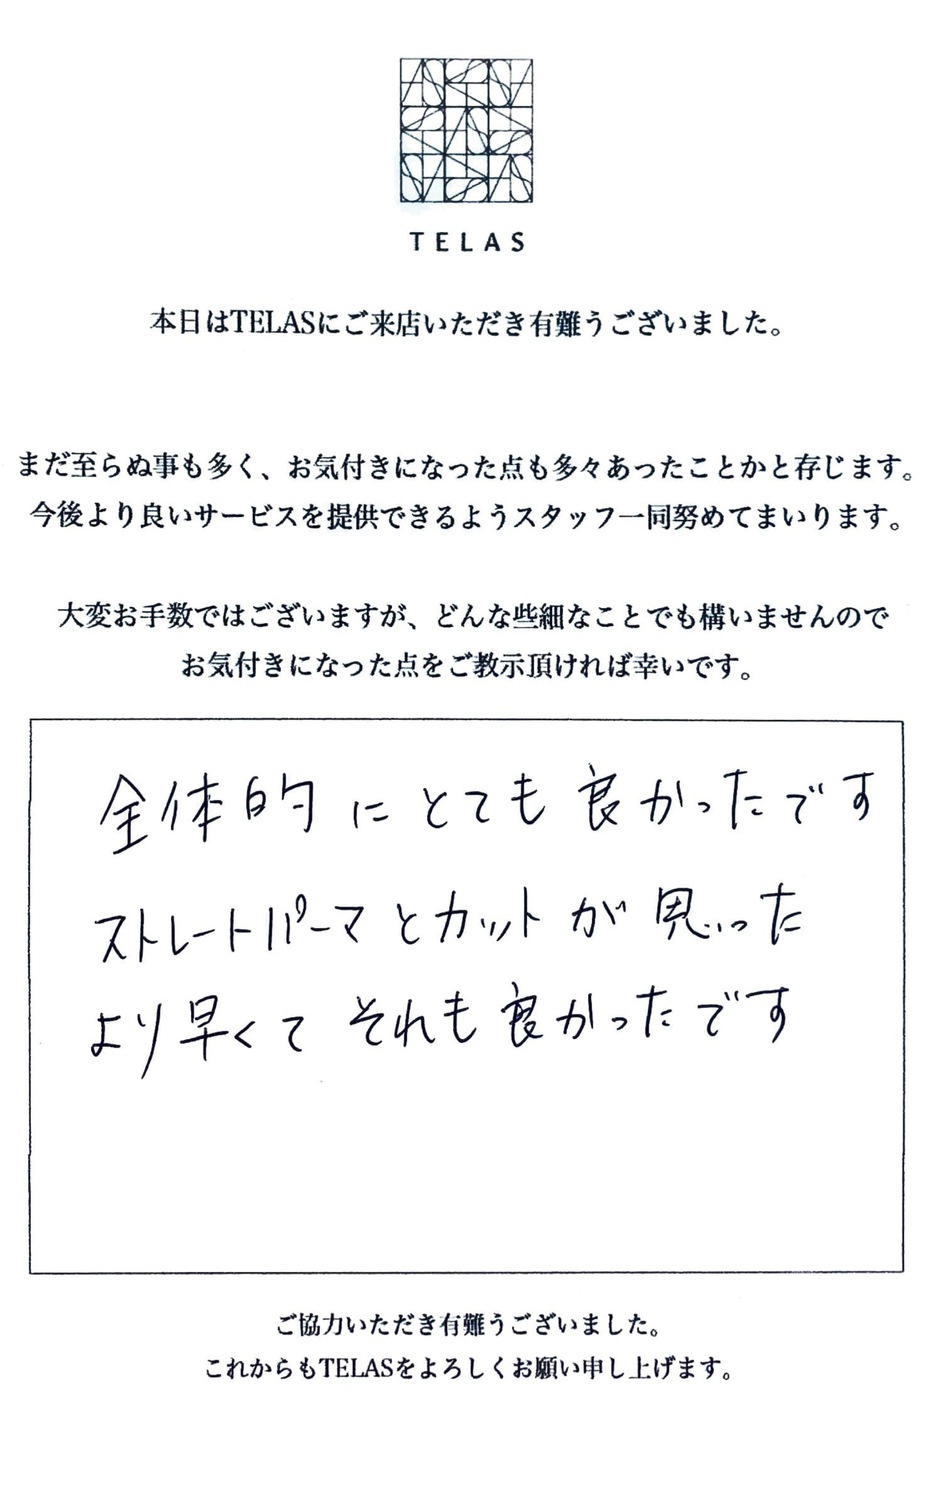 TELAS
本日はTELASにご来店いただき有難うございました。
まだ至らぬ事も多く、お気付きになった点も多々あったことかと存じます。
今後より良いサービスを提供できるようスタッフ一同努めてまいります。
大変お手数ではございますが、どんな些細なことでも構いませんので
お気付きになった点をご教示頂ければ幸いです。
全体的にとても良かったです
ストレートパーマとカットが思った
より早くてそれも良かったです
ご協力いただき有難うございました。
これからもTELASをよろしくお願い申し上げます。